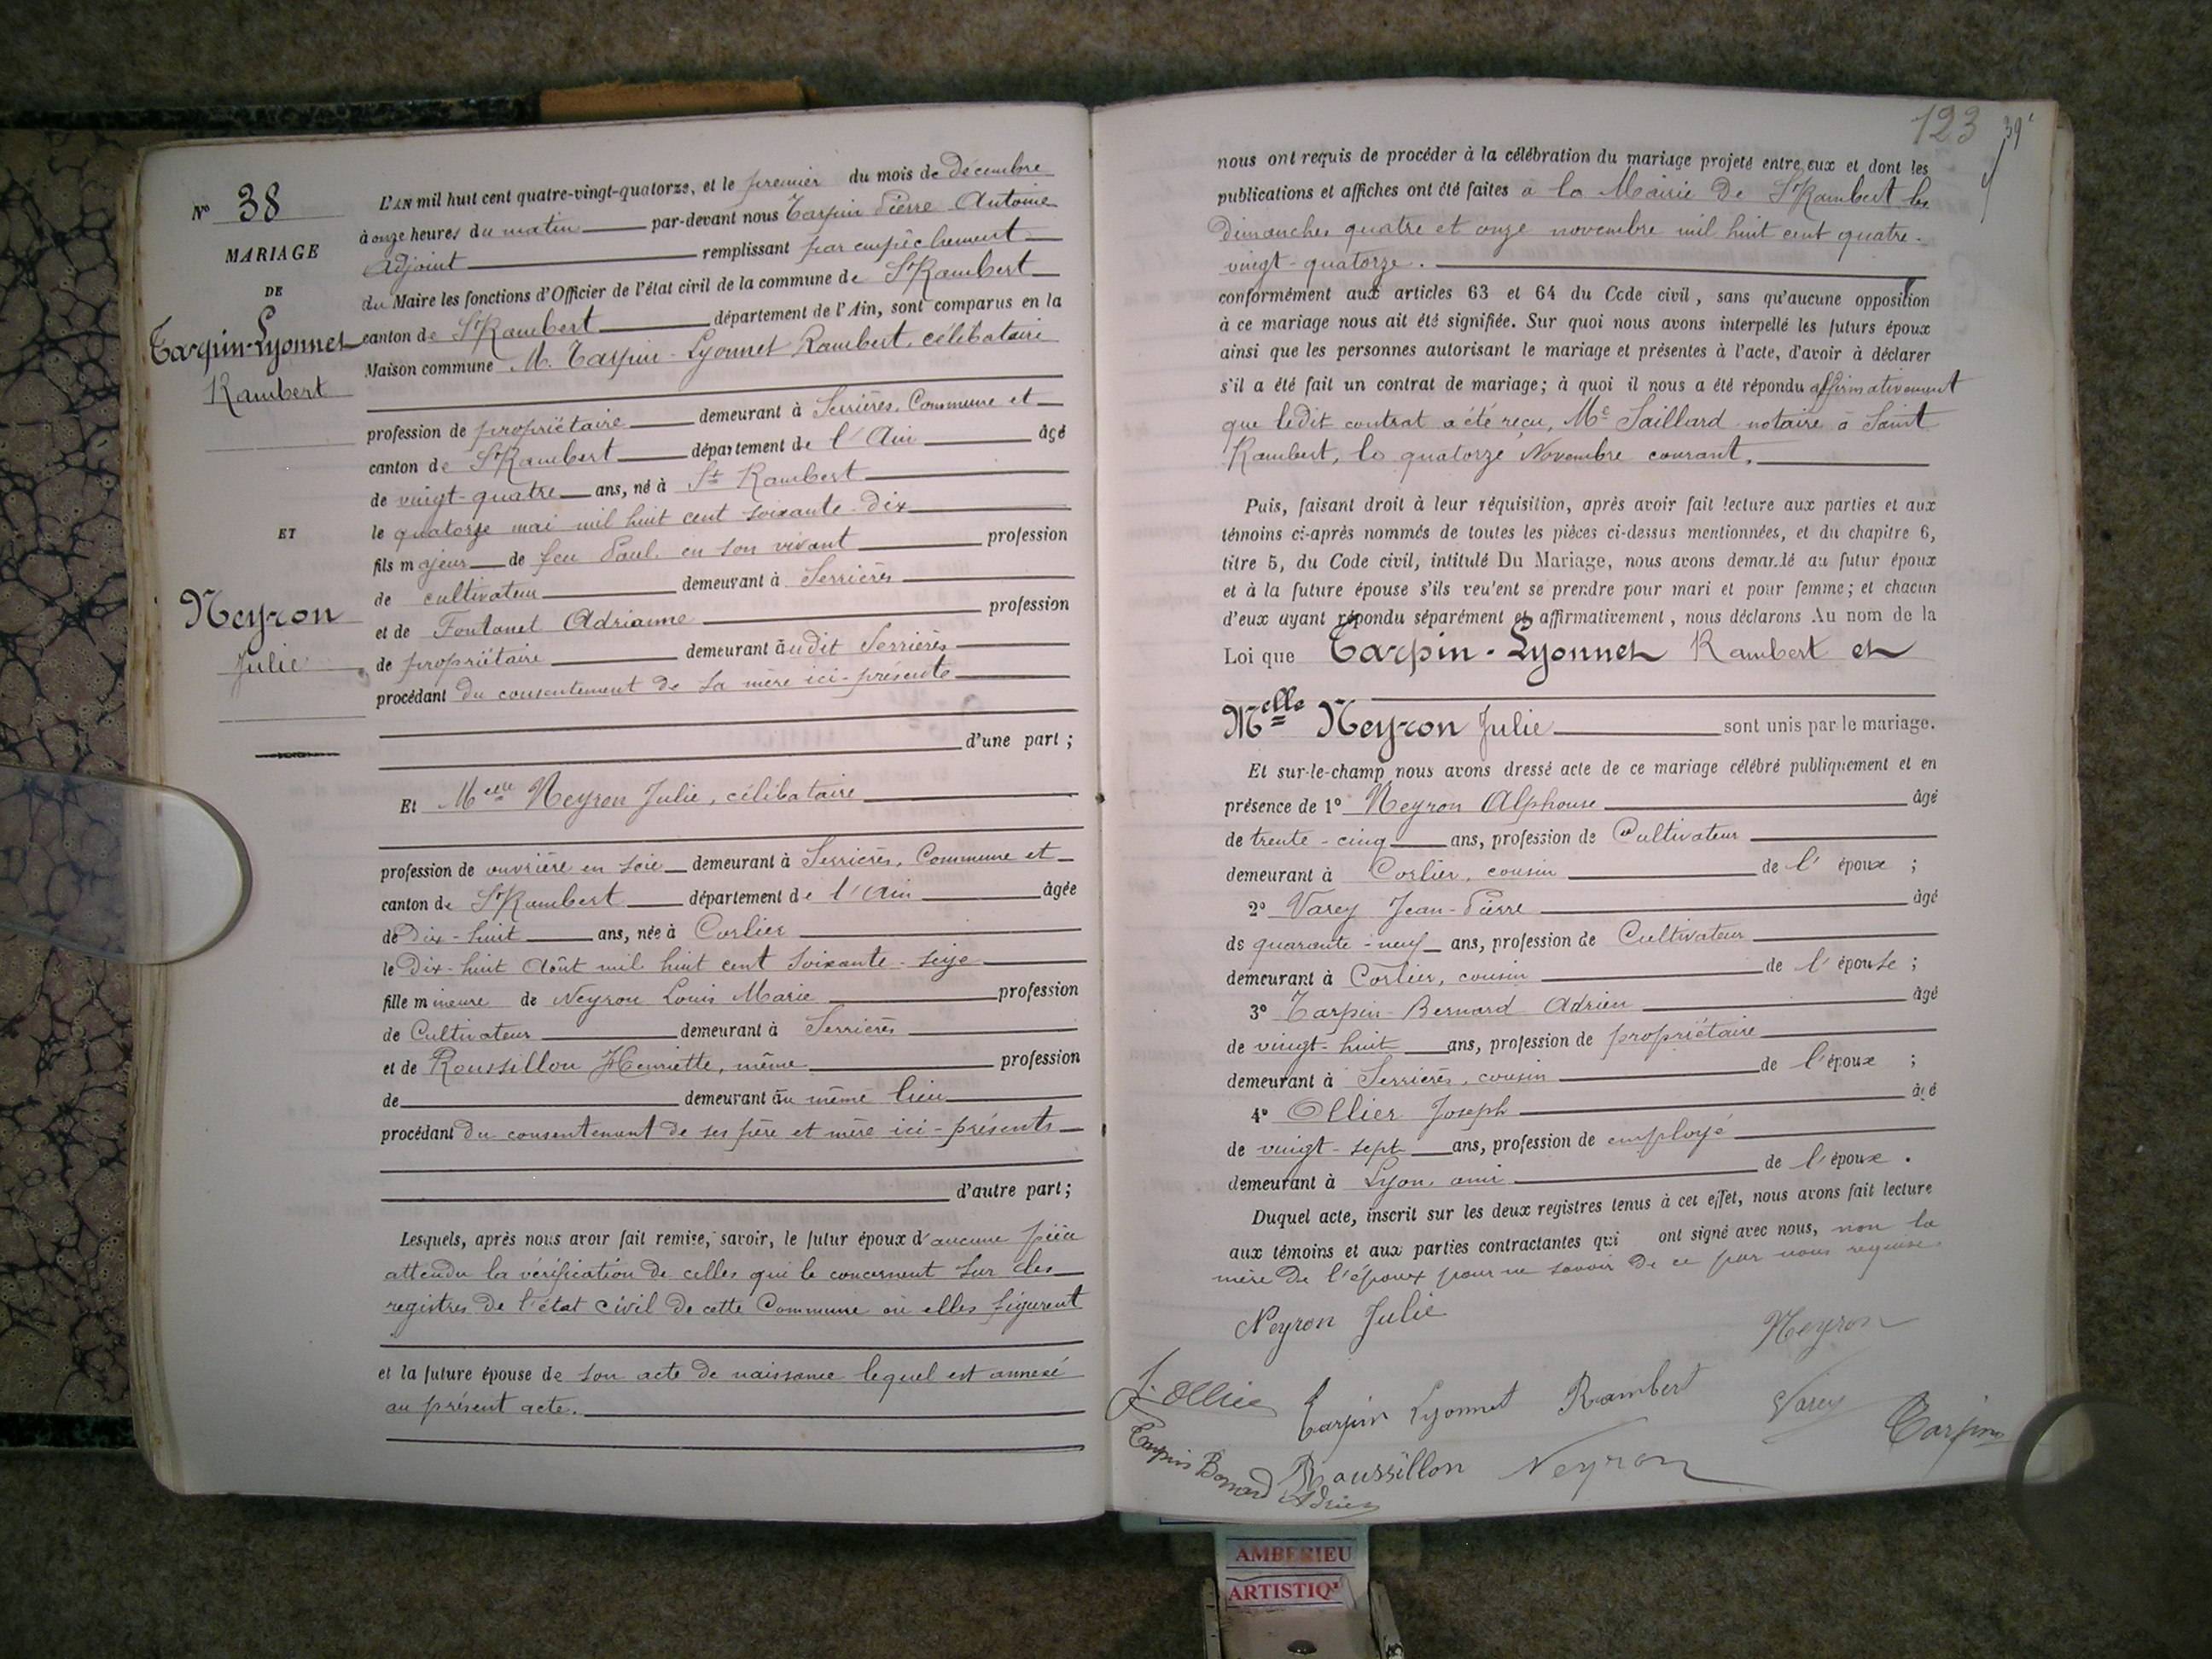 N° 38
MARIAGE
DE
Tarpin-Lyonnet
Rambert
ET
Neyron
Julie
L'AN mil huit cent quatre-vingt-quatorze, et le premier du mois de décembre
à onze heures du matin par-devant nous Tarpin Pierre Antoine
Adjoint remplissant par empêchement
du Maire les fonctions d'Officier de l'état civil de la commune de St Rambert
canton de St Rambert département de l'Ain, sont comparus en la
Maison commune M. Tarpin-Lyonnet Rambert, célibataire
profession de propriétaire demeurant à Serrières, Commune et
canton de St Rambert département de l'Ain âgé
de vingt-quatre ans, né à St Rambert
le quatorze mai mil huit cent soixante-dix
fils majeur de feu Paul en son vivant profession
de cultivateur demeurant à Serrières
et de Fontanel Adrianne profession
de propriétaire demeurant audit Serrières
procédant du consentement de sa mère ici-présente
d'une part ;
Et Melle Neyron Julie, célibataire
profession de ouvrière en soie demeurant à Serrières, Commune et
canton de St Rambert département de l'Ain âgée
de Dix-huit ans, née à Corlier
le Dix-huit Août mil huit cent soixante-seize
fille mineure de Neyron Louis Marie profession
de Cultivateur demeurant à Serrières
et de Roussillon Henriette, même profession
de demeurant au même lieu
procédant du consentement de ses père et mère ici-présents
d'autre part ;
Lesquels, après nous avoir fait remise, savoir, le futur époux d'aucune pièce
attendu la vérification de celles qui le concernent sur les
registres de l'état civil de cette Commune où elles figurent
et la future épouse de son acte de naissance lequel est annexé
au présent acte.
123
39
nous ont requis de procéder à la célébration du mariage projeté entre eux et dont les
publications et affiches ont été faites à la Mairie de St Rambert les
dimanches quatre et onze novembre mil huit cent quatre-
vingt-quatorze.
conformément aux articles 63 et 64 du Code civil, sans qu'aucune opposition
à ce mariage nous ait été signifiée. Sur quoi nous avons interpellé les futurs époux
ainsi que les personnes autorisant le mariage et présentes à l'acte, d'avoir à déclarer
s'il a été fait un contrat de mariage; à quoi il nous a été répondu affirmativement
que ledit contrat a été reçu, Me Saillard notaire à Saint
Rambert, le quatorze Novembre courant.
Puis, faisant droit à leur réquisition, après avoir fait lecture aux parties et aux
témoins ci-après nommés de toutes les pièces ci-dessus mentionnées, et du chapitre 6,
titre 5, du Code civil, intitulé Du Mariage, nous avons demandé au futur époux
et à la future épouse s'ils veulent se prendre pour mari et pour femme; et chacun
d'eux ayant répondu séparément et affirmativement, nous déclarons Au nom de la
Loi que Tarpin-Lyonnet Rambert et
Melle Neyron Julie sont unis par le mariage.
Et sur-le-champ nous avons dressé acte de ce mariage célébré publiquement et en
présence de 1° Neyron Alphonse âgé
de trente-cinq ans, profession de Cultivateur
demeurant à Corlier, cousin de l'époux ;
2° Varey Jean-Pierre âgé
de quarante-neuf ans, profession de Cultivateur
demeurant à Corlier, cousin de l'épouse ;
3° Tarpin-Bernard Adrien âgé
de vingt-huit ans, profession de propriétaire
demeurant à Serrières, cousin de l'époux ;
4° Ollier Joseph âgé
de vingt-sept ans, profession de employé
demeurant à Lyon, ami de l'époux.
Duquel acte, inscrit sur les deux registres tenus à cet effet, nous avons fait lecture
aux témoins et aux parties contractantes qui ont signé avec nous, non la
mère de l'époux pour ne savoir de ce par nous requise.
Neyron Julie
Neyron
J. Ollier
Tarpin Lyonnet Rambert
Varey
Tarpin
Tarpin Bernard Adrien
Roussillon
Neyron
AMBERIEU
ARTISTIQ